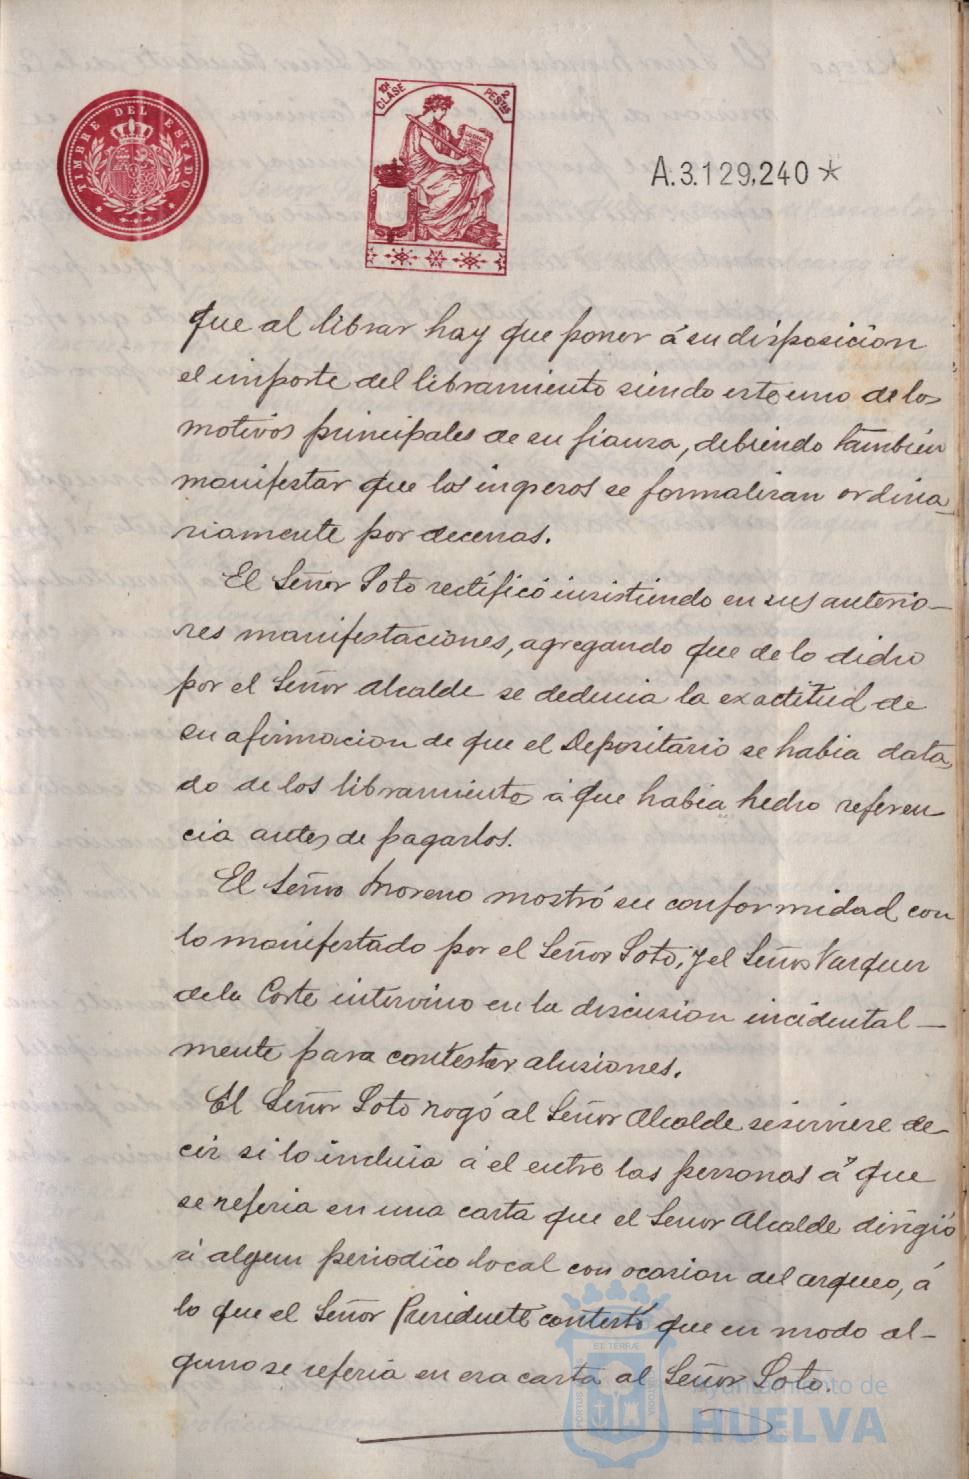 TIMBRE DEL ESTADO
10ª CLASE
2 PESTAS
A.3.129,240*
que al librar hay que poner á su disposición
el importe del libramiento siendo este uno de los
motivos principales de su fianza, debiendo también
manifestar que los ingresos se formalizan ordina-
riamente por decenas.
El Señor Soto rectificó insistiendo en sus anterio-
res manifestaciones, agregando que de lo dicho
por el Señor Alcalde se deducia la exactitud de
su afirmacion de que el Depositario se habia data-
do de los libramientos á que habia hecho referen-
cia antes de pagarlos.
El Señor Moreno mostró su conformidad con
lo manifestado por el Señor Soto, y el Señor Vazquez
de la Corte intervino en la discusion incidental-
mente para contestar alusiones.
El Señor Soto rogó al Señor Alcalde se sirviese de-
cir si lo incluia á el entre las personas á que
se referia en una carta que el Señor Alcalde dirigió
á algun periodico local con ocasion del arqueo, á
lo que el Señor Presidente contestó que en modo al-
guno se referia en esa carta al Señor Soto.
Ayuntamiento de
HUELVA